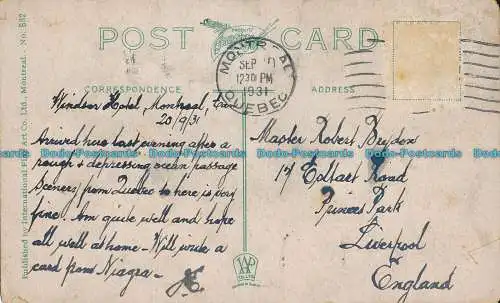 POST CARD
CORRESPONDENCE
ADDRESS
MONTREAL
SEP
12 30 PM
1931
QUEBEC
Windsor Hotel, Montreal,
20/9/31
Arrived here last evening after a
rough & depressing ocean passage
Scenery from Quebec to here is very
fine. Am quite well and hope
all well at home - Will write a
card from Niagra -
Master Robert Brydon
14 Belfast Road
Princes Park
Liverpool
England
Published by International Fine Art Co. Ltd., Montreal. - No. 582
Dodo-Postcards Dodo-Postcards Dodo-Postcards